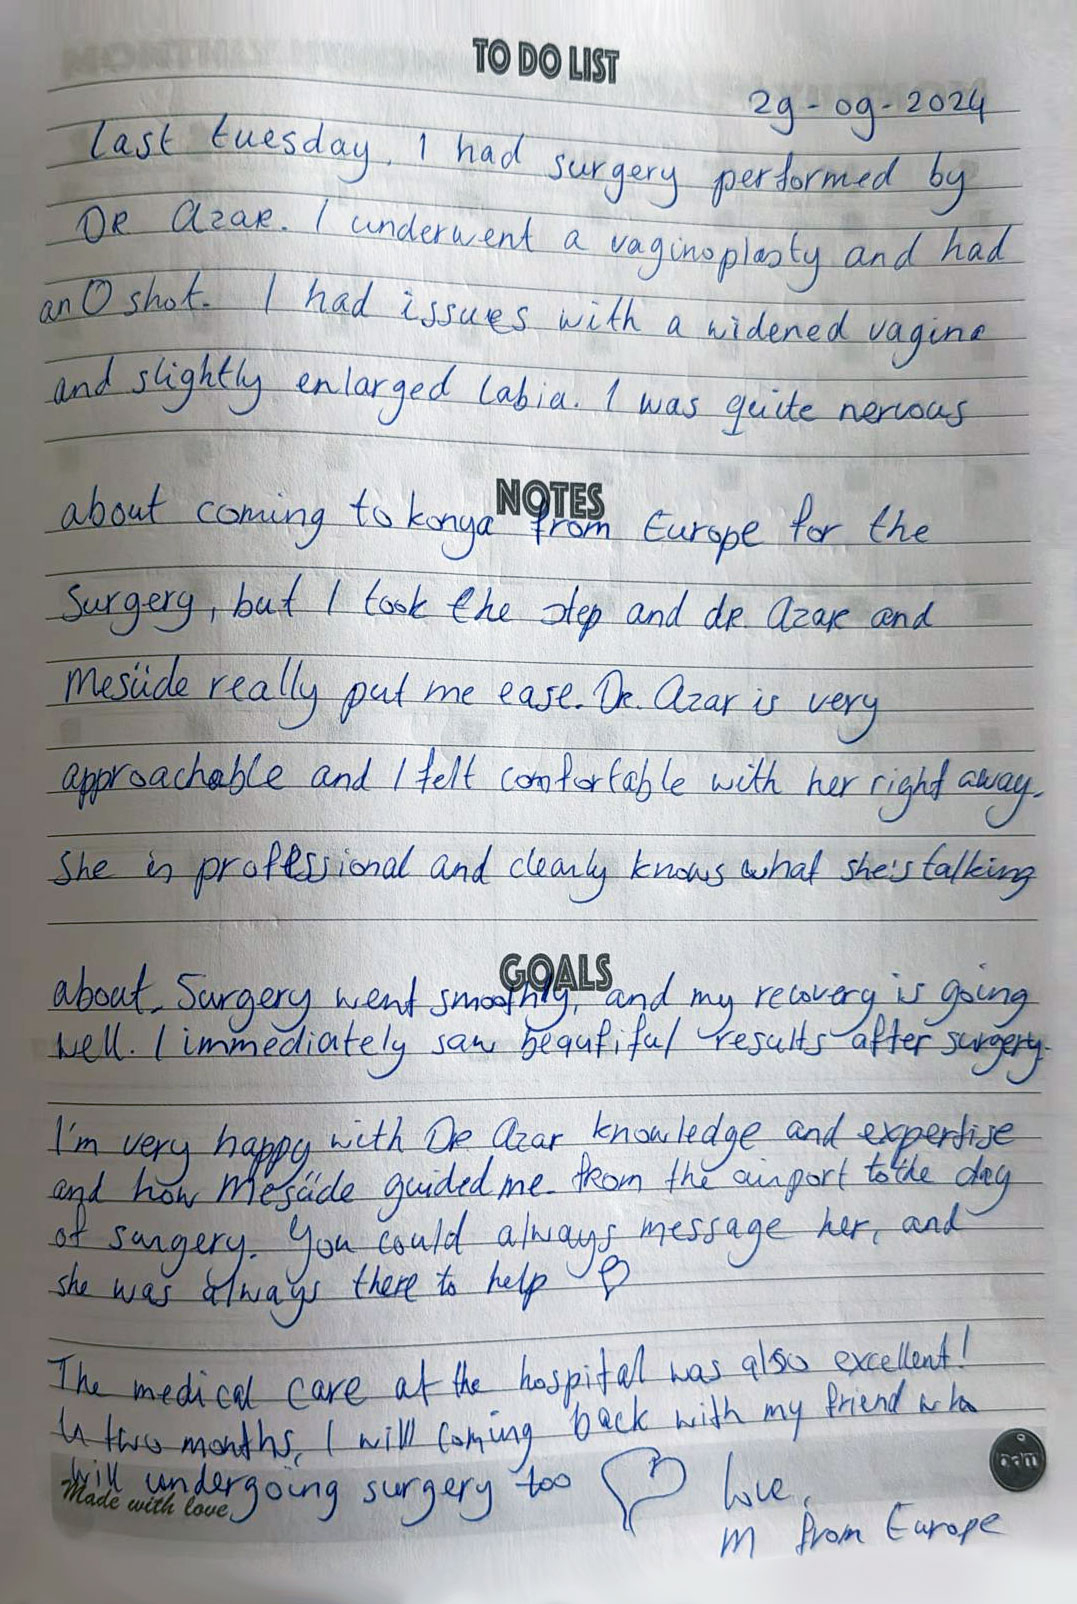 TO DO LIST
29-09-2024
Last tuesday, I had surgery performed by
DR Azar. I underwent a vaginoplasty and had
an O shot. I had issues with a widened vagina
and slightly enlarged labia. I was quite nervous
NOTES
about coming to konya from Europe for the
Surgery, but I took the step and dr. Azar and
Mesüde really put me ease. Dr. Azar is very
approachable and I felt comfortable with her right away.
She is professional and clearly knows what she's talking
GOALS
about. Surgery went smoothly, and my recovery is going
well. I immediately saw beautiful results after surgery.
I'm very happy with Dr Azar knowledge and expertise
and how Mesüde guided me from the airport to the day
of surgery. You could always message her, and
she was always there to help
The medical care at the hospital was also excellent!
In two months, I will coming back with my friend who
will undergoing surgery too
Made with love
Love,
M from Europe